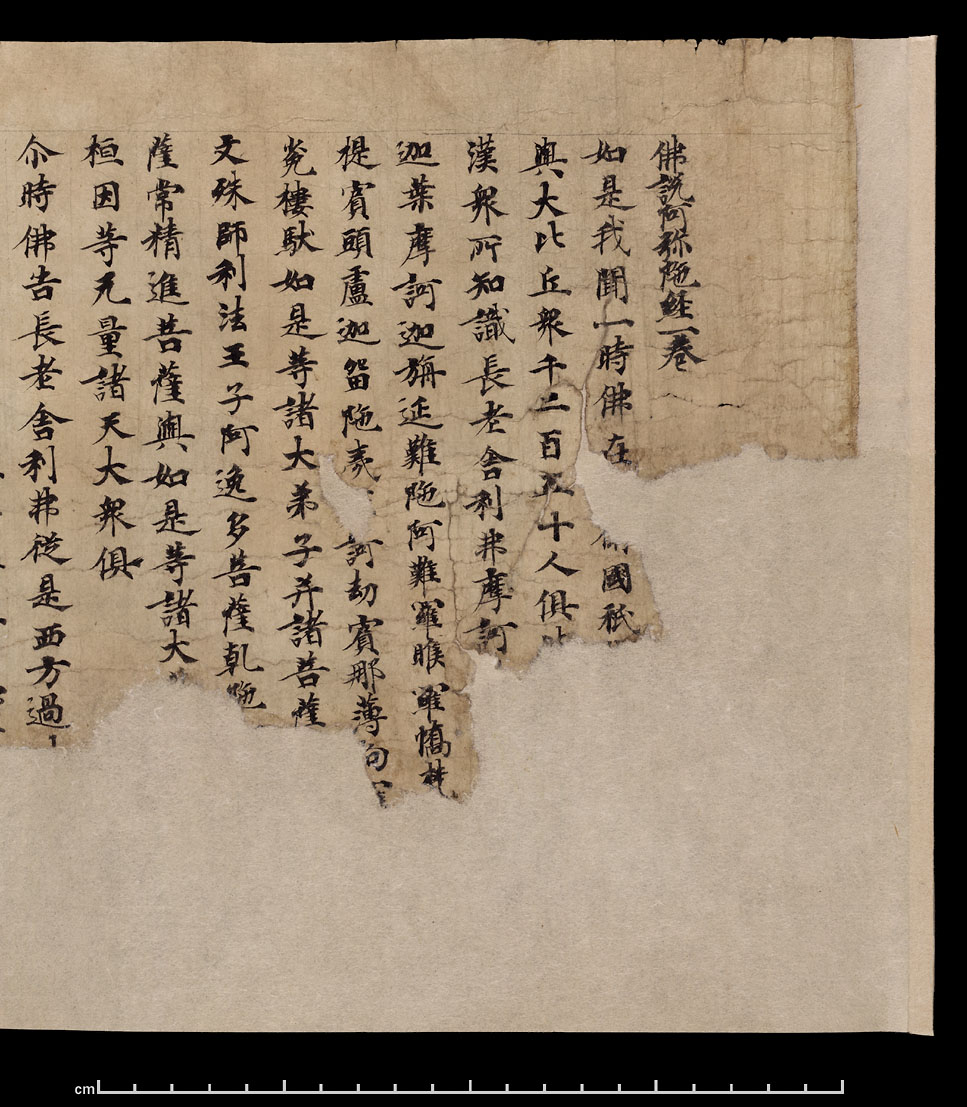 佛說阿弥陁經一卷
如是我聞一時佛在 國祇
與大比丘衆千二百五十人俱
漢衆所知識長老舍利弗摩訶
迦葉摩訶迦旃延難陁阿難羅睺羅憍
提賓頭盧迦留陁夷 訶劫賓那薄拘
㝹樓馱如是等諸大弟子并諸菩薩
文殊師利法王子阿逸多菩薩乹陁
薩常精進菩薩與如是等諸大
桓因等无量諸天大衆俱
尒時佛告長老舍利弗從是西方過
cm